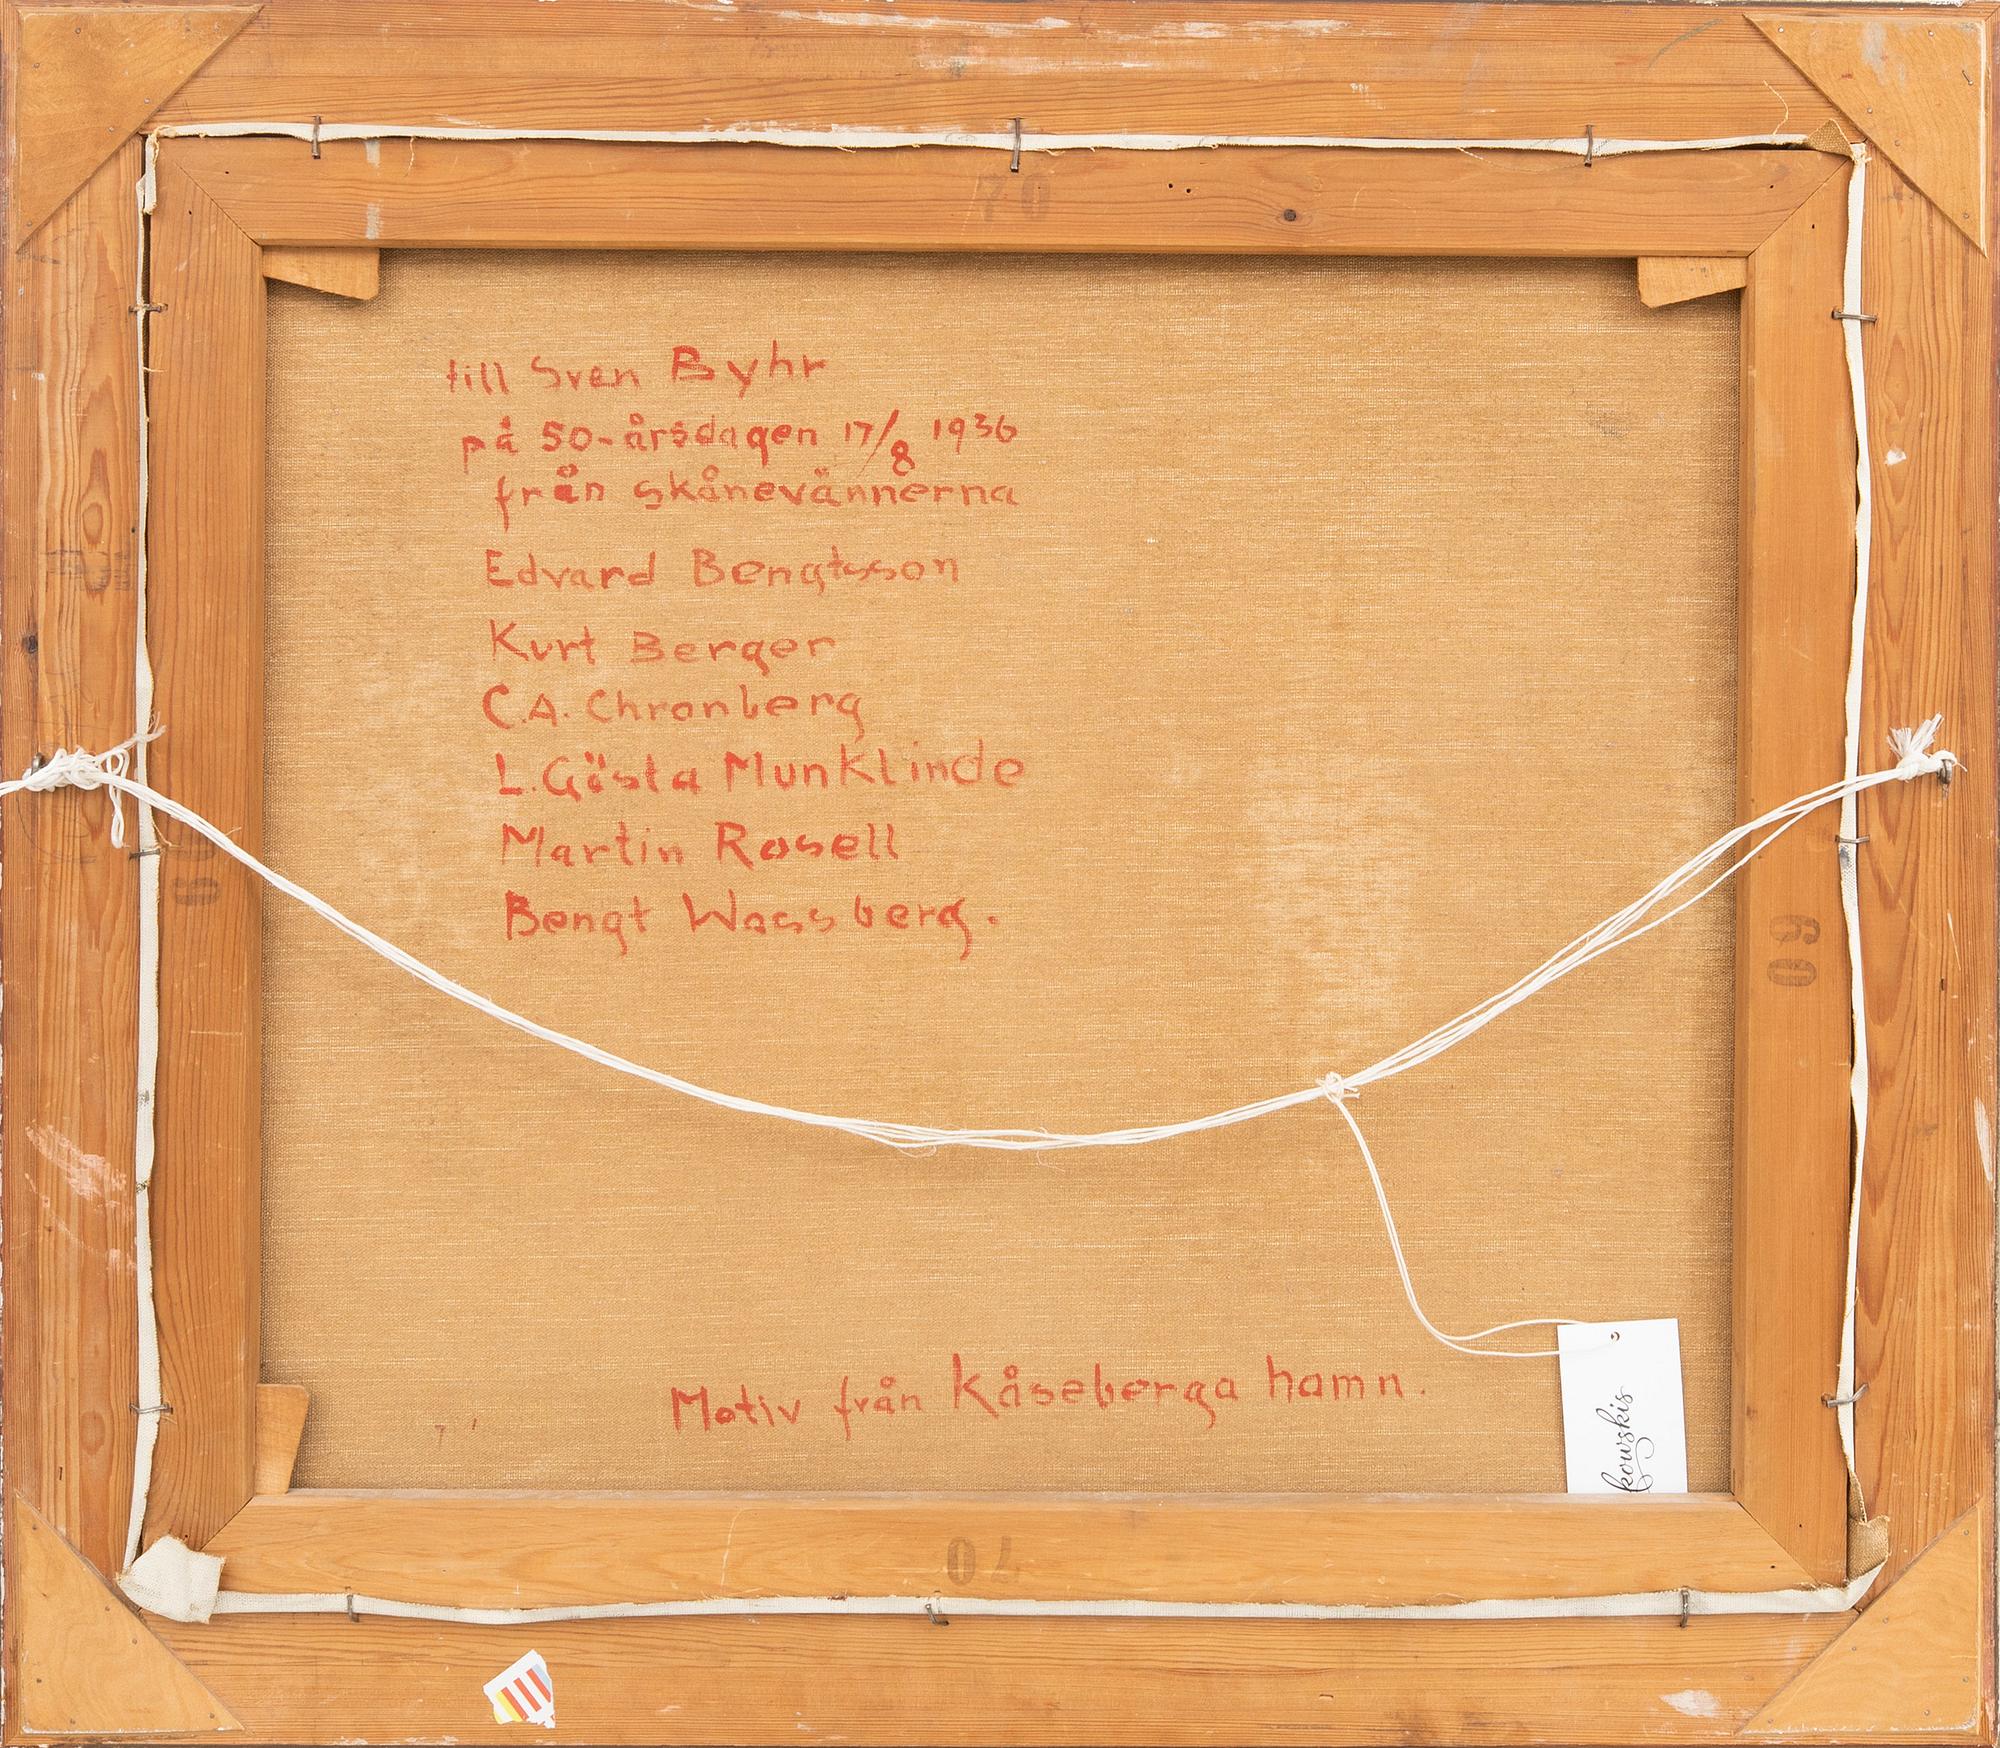 70
till Sven Byhr
på 50-årsdagen 17/8 1936
från skånevännerna
Edvard Bengtsson
Kurt Berger
C.A. Chronberg
L.Gösta Munklinde
Martin Rosell
Bengt Wassberg.
60
60
Motiv från Kåseberga hamn.
kowskis
70